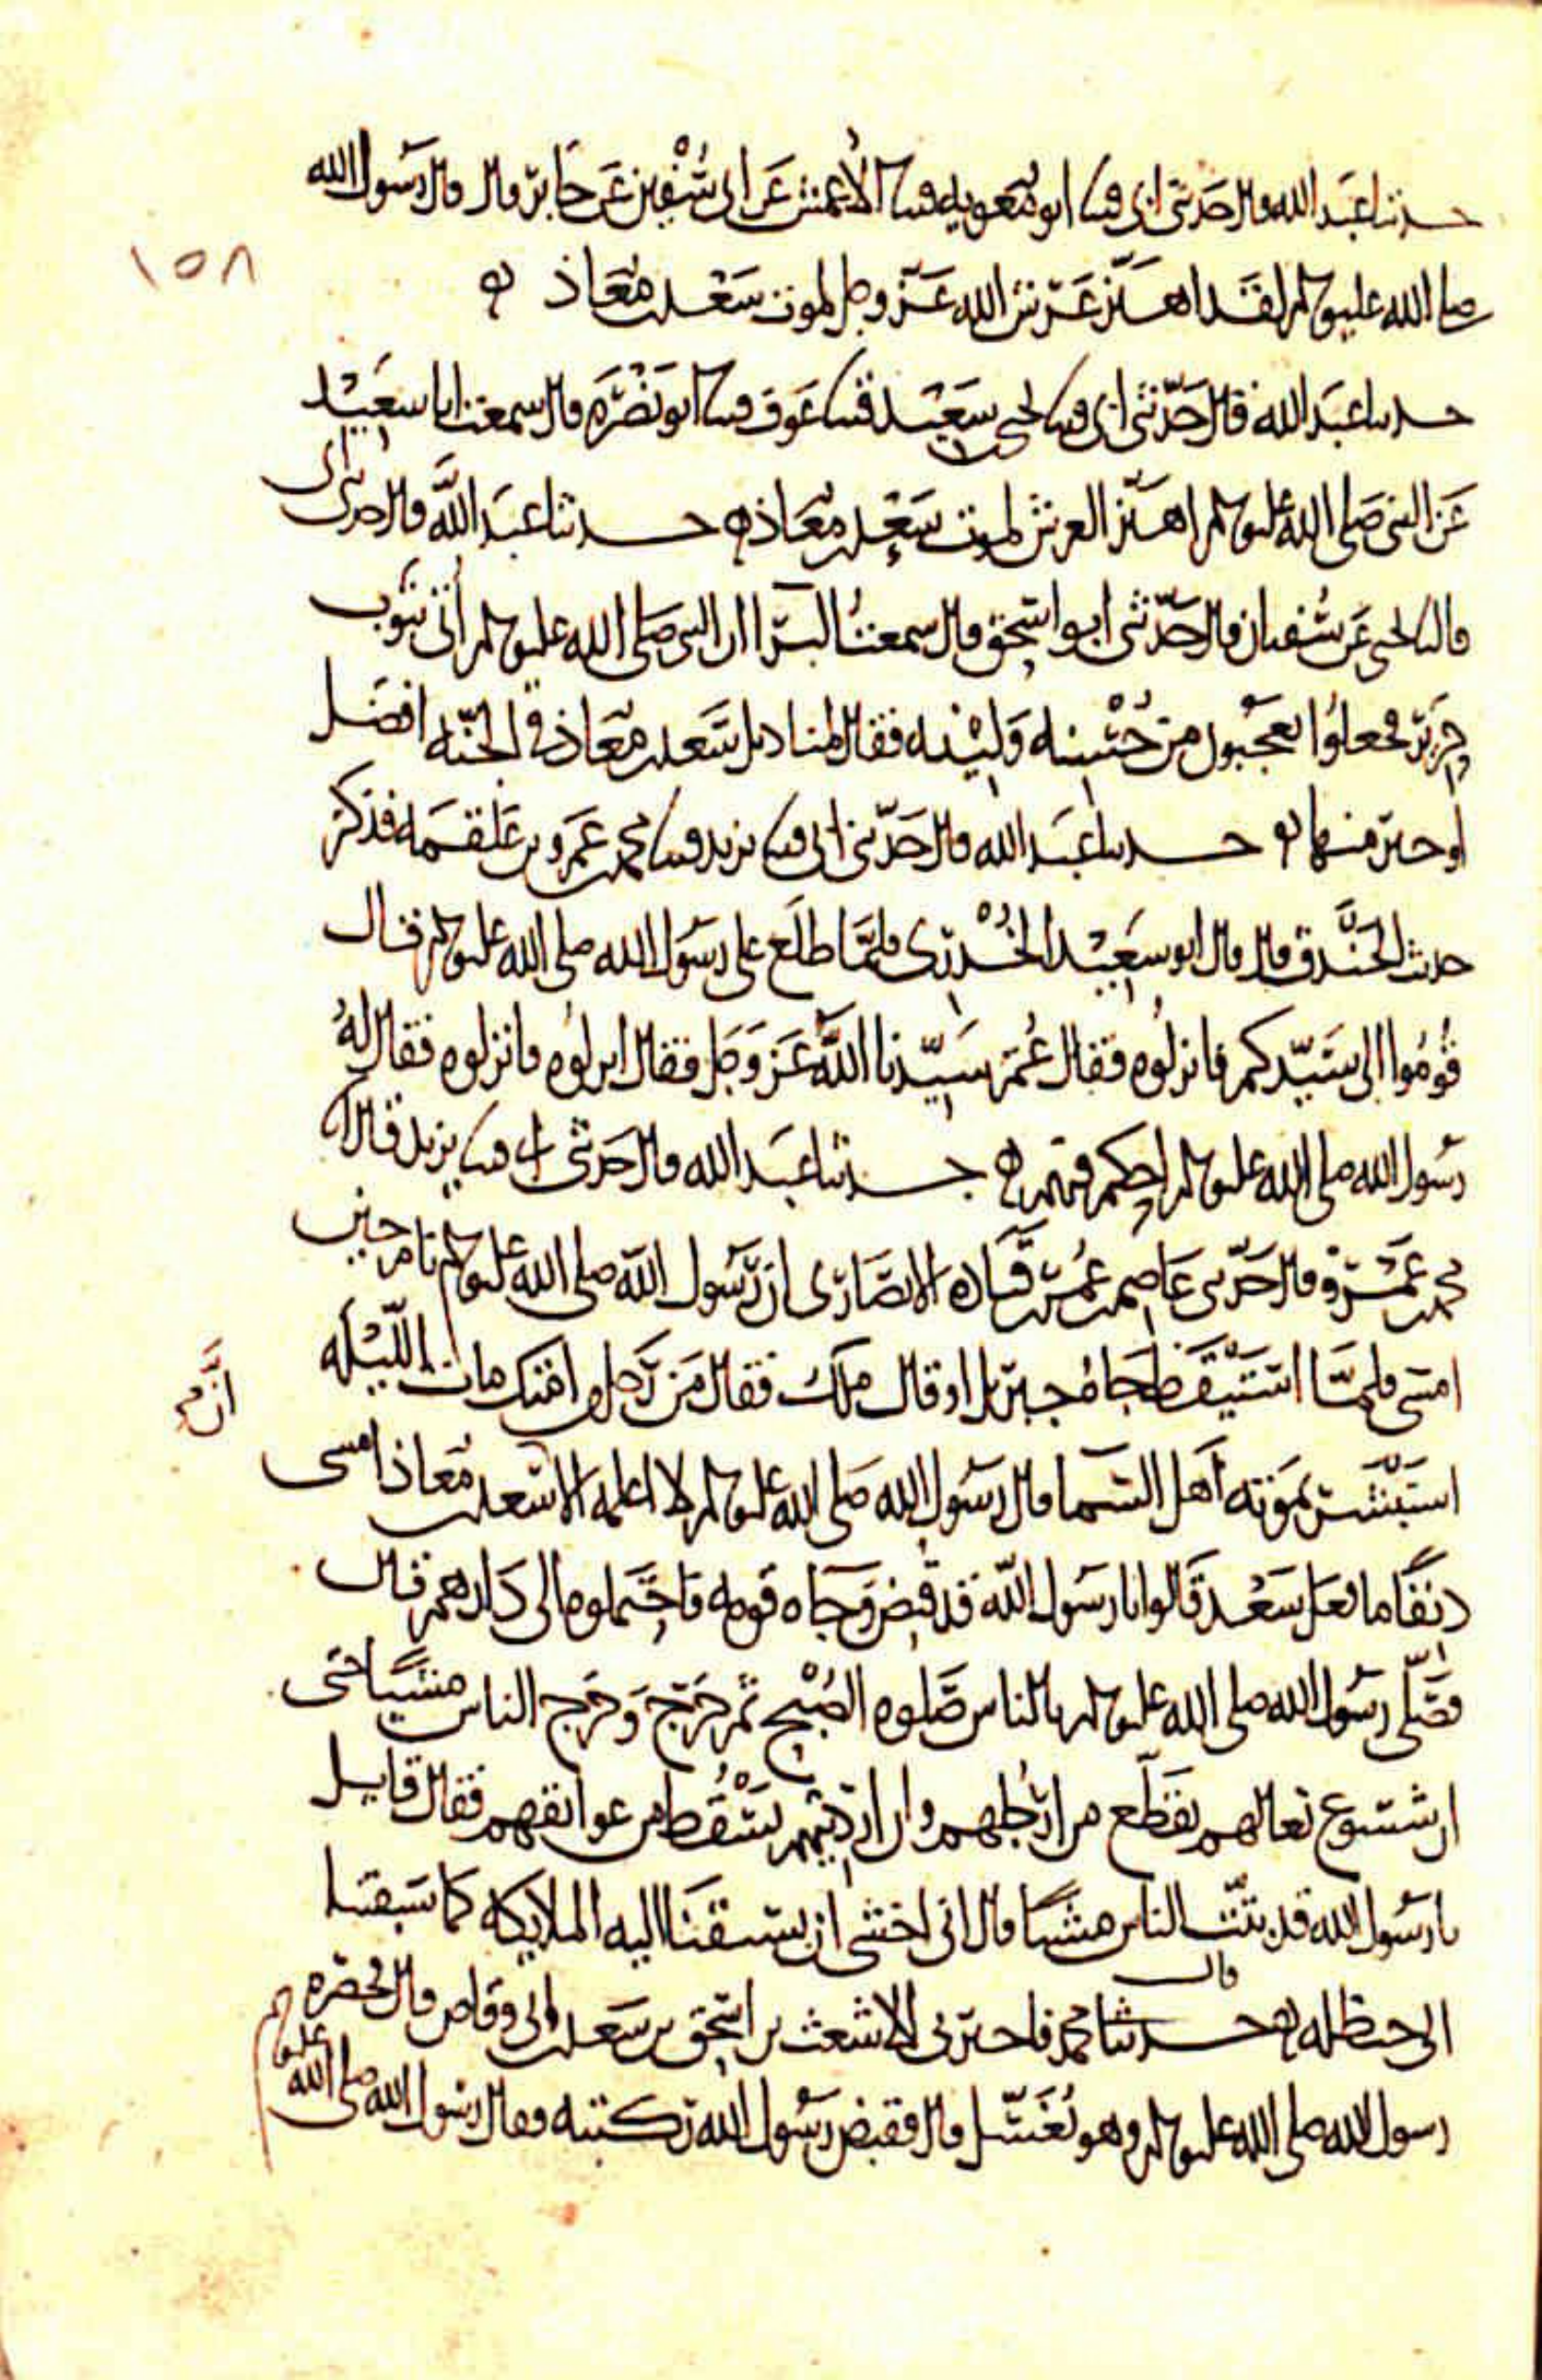 حدثنا عبد الله قال حدثني ابي قثنا ابو معويه قثنا الاعمش عن ابي سفين عن جابر قال قال رسول الله
١٥٨
صلى الله عليه وسلم لقد اهتز عرش الله عز وجل لموت سعد بن معاذ
حدثنا عبد الله قال حدثني ابي قثنا يحيى بن سعيد قثنا عوف قثنا ابو نضره قال سمعت ابا سعيد
عن النبي صلى الله عليه وسلم اهتز العرش لموت سعد بن معاذ حدثنا عبد الله قال حدثني ابي
قال نا يحيى عن سفيان قال حدثني ابو اسحق قال سمعت البرا ان النبي صلى الله عليه وسلم اتي بثوب
حرير فجعلوا يعجبون من حسنه ولينه فقال لمناديل سعد بن معاذ في الجنه افضل
او خير منها حدثنا عبد الله قال حدثني ابي قثنا يزيد قثنا محمد بن عمرو بن علقمه فذكر
حديث الخندق قال قال ابو سعيد الخدري فلما طلع على رسول الله صلى الله عليه وسلم قال
قوموا الى سيدكم فانزلوه فقال عمر سيدنا الله عز وجل فقال انزلوه فانزلوه فقال له
رسول الله صلى الله عليه وسلم احكم فيهم حدثنا عبد الله قال حدثني ابي قثنا يزيد قال انا
محمد بن عمرو قال حدثني عاصم بن عمر بن قتاده الانصاري ان رسول الله صلى الله عليه وسلم نام حين
امسى فلما استيقظ جاه جبريل او قال ملك فقال من رجل من امتك مات الليله
استبشر بموته اهل السما قال رسول الله صلى الله عليه وسلم لا اعلمه الا سعد بن معاذ امسى
دنفا ما فعل سعد قالوا يا رسول الله قد قبض وجاه قومه فاحتملوه الى دارهم قال
فصلى رسول الله صلى الله عليه وسلم بالناس صلوه الصبح ثم خرج وخرج الناس مشيا حتى
ان شسوع نعالهم تقطع من ارجلهم وان ارديتهم تسقط من عواتقهم فقال قايل
يا رسول الله قد بتت الناس مشيا قال اني اخشى ان تسبقنا اليه الملايكه كما سبقتنا
الى حنظله قال حدثنا محمد فاخبرني الاشعث بن اسحق بن سعد بن ابي وقاص قال فحضره
رسول الله صلى الله عليه وسلم وهو يغسل قال فقبض رسول الله ركبته فقال رسول الله صلى الله عليه وسلم